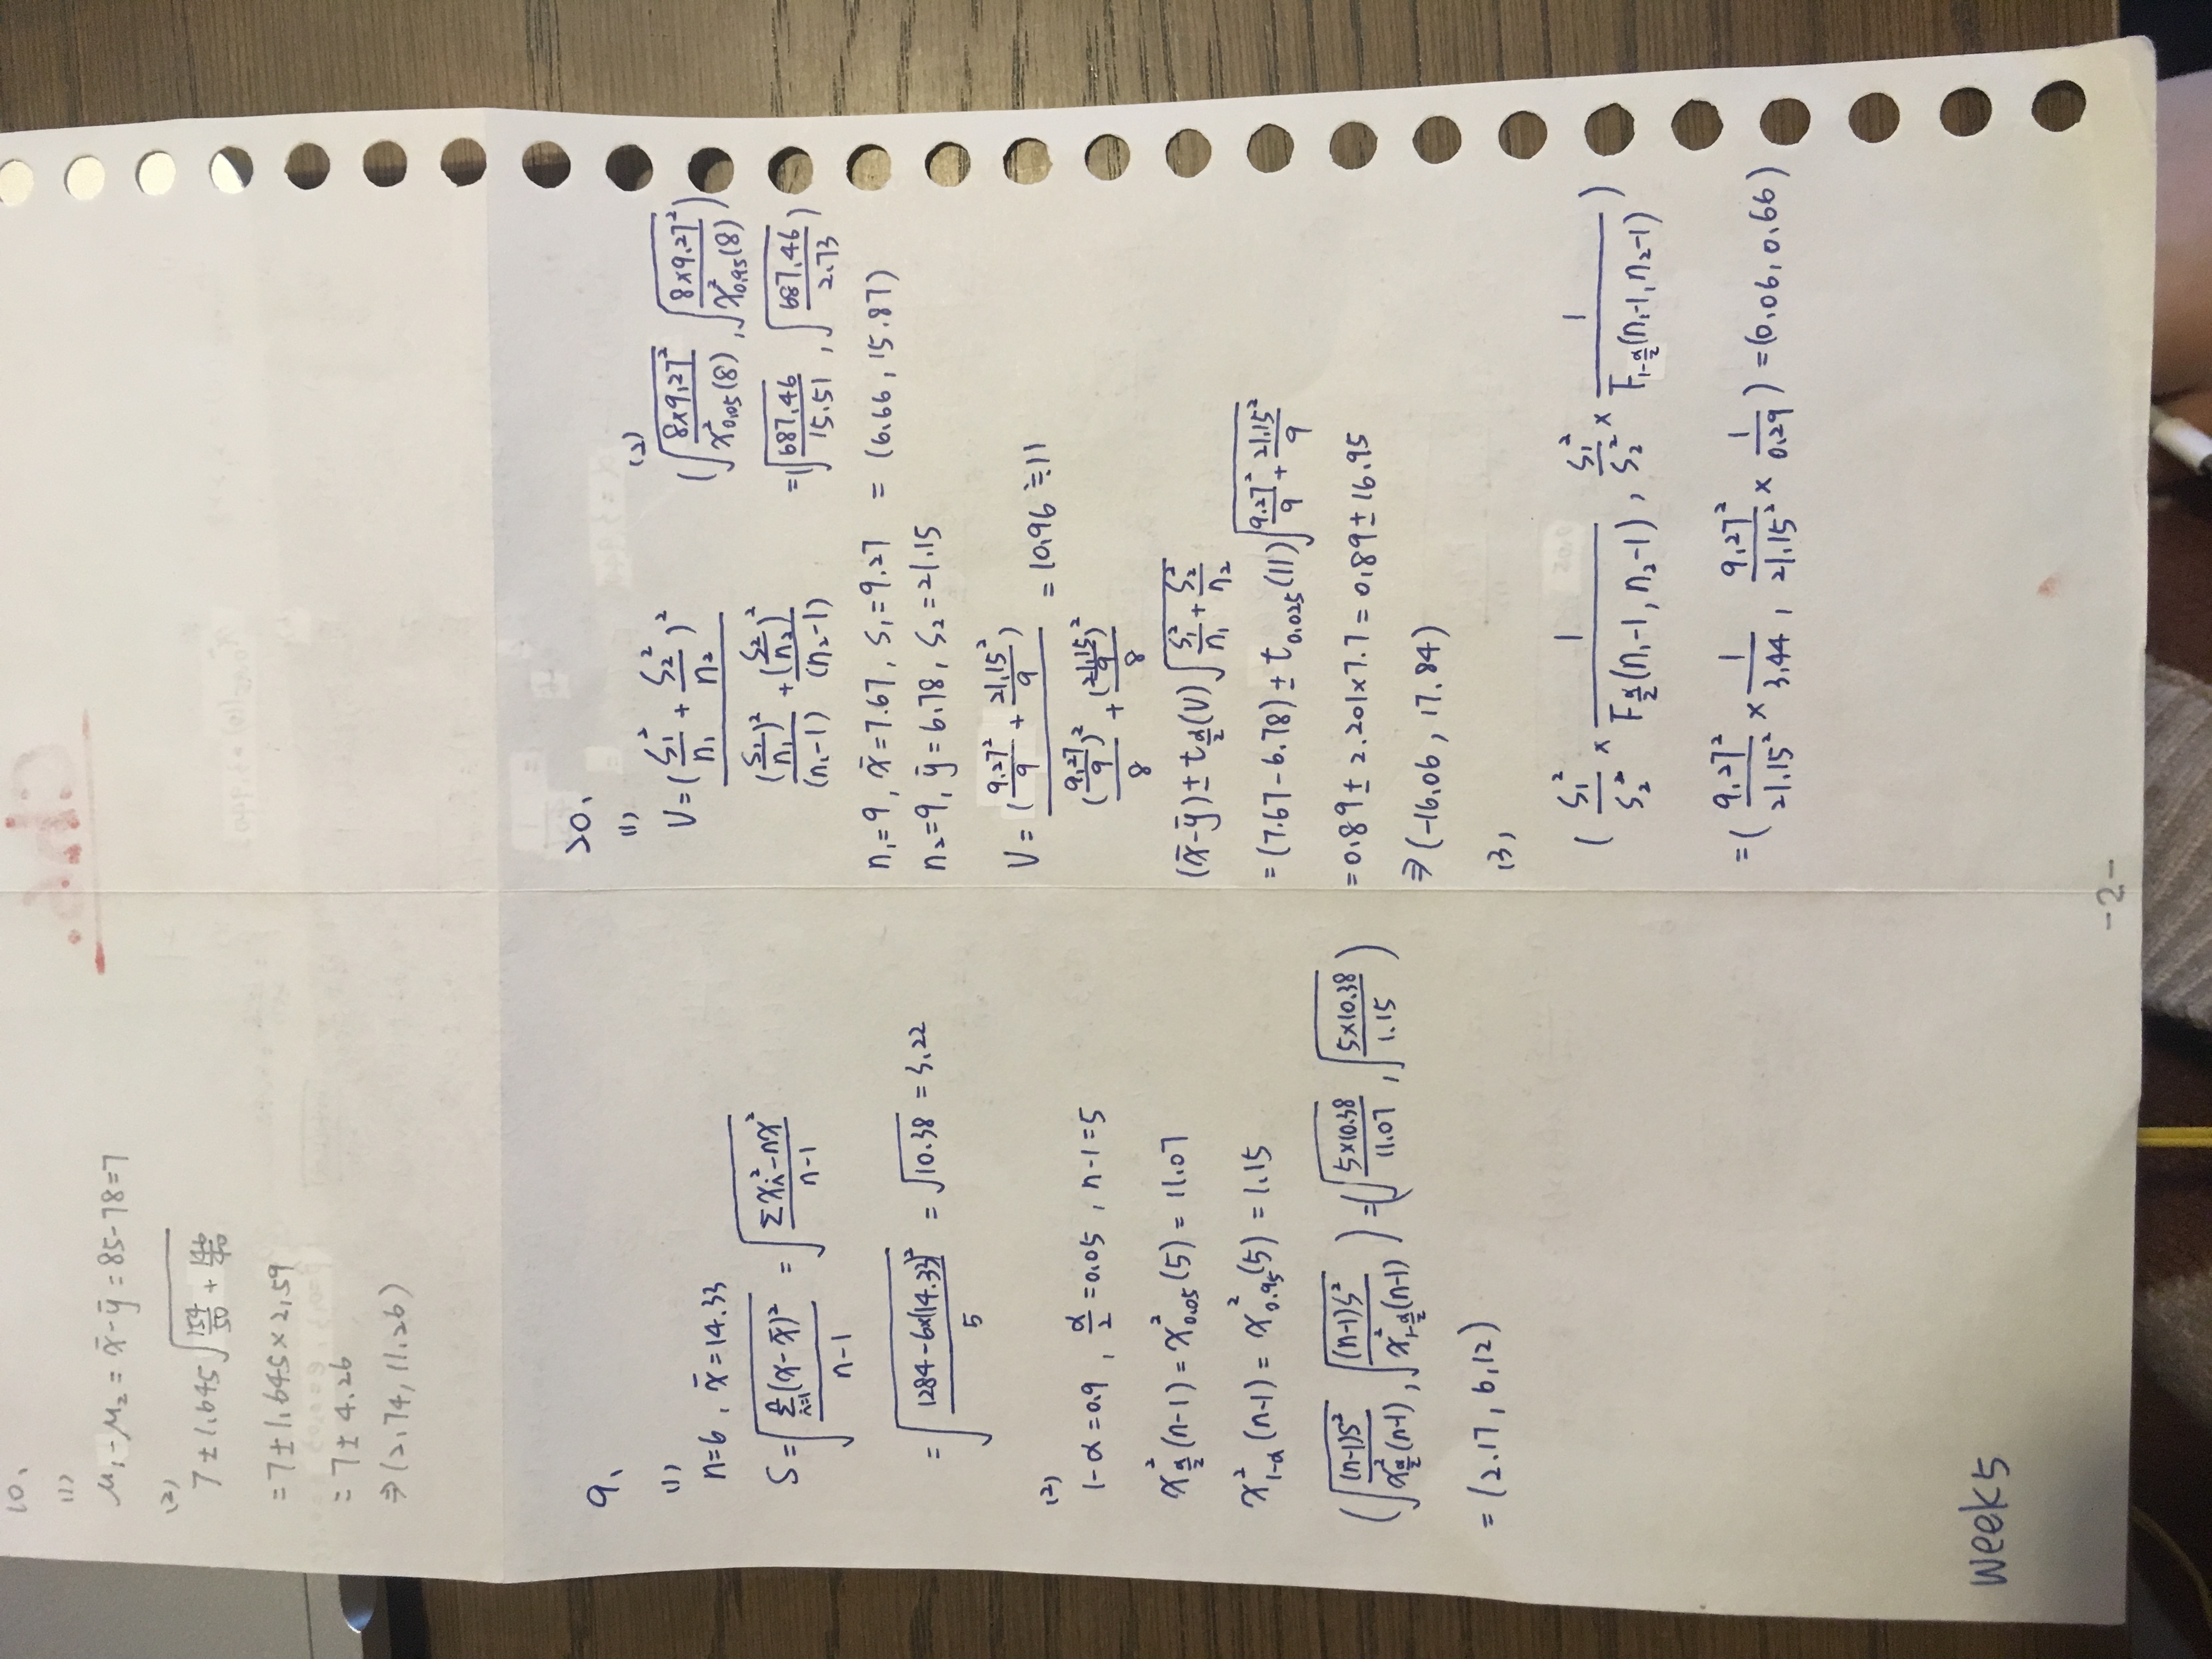 Ch6.
10、
(1)
μ₁-μ₂ = x̄-ȳ = 85-78=7
(2)
7±1.645√(154/50 + 146/40)
=7±1.645×2.59
=7±4.26
⇒(2.74, 11.26)
9、
(1)
n=6, x̄=14.33
S=√(Σⁿᵢ₌₁(x-x̄)²/n-1) = √(Σxᵢ²-nx²/n-1)
=√(1284-6×(14.33)²/5) = √10.38 = 3.22
(2)
1-α=0.9, α/2=0.05, n-1=5
χ²α/2(n-1) = χ²0.05(5) = 11.07
χ²1-α(n-1) = χ²0.95(5) = 1.15
(√((n-1)S²/χ²α/2(n-1)), √((n-1)S²/χ²1-α/2(n-1))) = (√(5×10.38/11.07), √(5×10.38/1.15))
= (2.17, 6.12)
20、
(1)
V=(S₁²/n₁ + S₂²/n₂)² / ((S₁/n₁)²/(n₁-1) + (S₂/n₂)²/(n₂-1))
n₁=9, x̄=7.67, S₁=9.27
n₂=9, ȳ=6.78, S₂=21.15
V=(9.27²/9 + 21.15²/9) / ((9.27/9)²/8 + (21.15/9)²/8) = 10.96≒11
(x̄-ȳ)±tα/2(V)√(S₁²/n₁ + S₂²/n₂)
=(7.67-6.78)±t0.025(11)√(9.27²/9 + 21.15²/9)
=0.89±2.201×7.7=0.89±16.95
⇒(-16.06, 17.84)
(2)
(√(8×9.27²/χ²0.05(8)), √(8×9.27²/χ²0.95(8)))
=(√(687.46/15.51), √(687.46/2.73))
= (6.66, 15.87)
(3)
(S₁²/S₂² × 1/Fα/2(n₁-1, n₂-1), S₁²/S₂² × 1/F1-α/2(n₁-1, n₂-1))
=(9.27²/21.15² × 1/3.44, 9.27²/21.15² × 1/0.29) =(0.06, 0.66)
week5
-2-